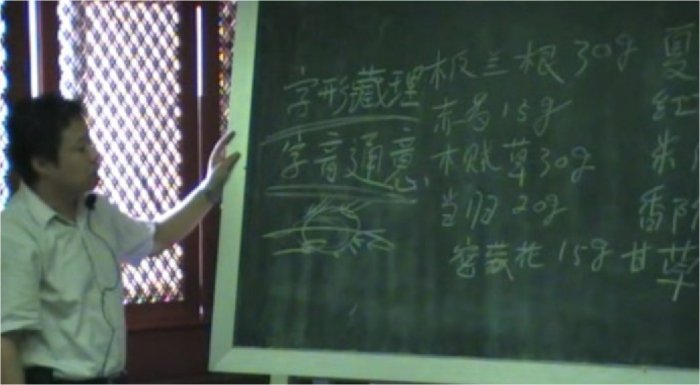 字形藏理
字音通意
板兰根 30g
赤芍 15g
木贼草 30g
当归 20g
密蒙花 15g 甘草
夏
红